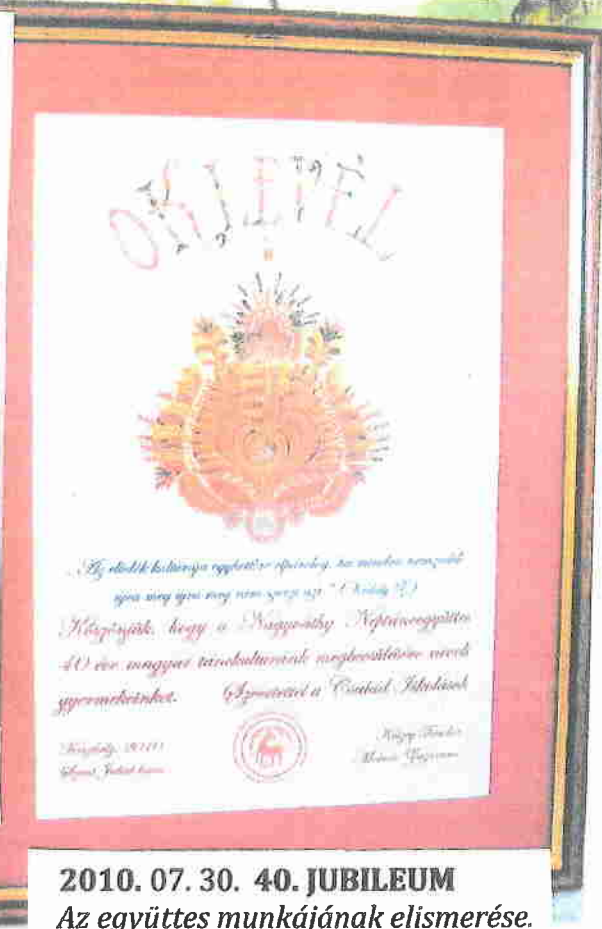 OKLEVÉL
"Az elődök kultúrája egykettőre elpárolog, ha minden nemzedék
újra meg újra meg nem szerzi azt." (Kodály Z.)
Köszönjük, hogy a Nagyváthy Néptáncegyüttes
40 éve magyar tánckultúránk megbecsülésére neveli
gyermekeinket. Szeretettel a Család Iskolások
Keszthely, 2010
2010. 07. 30. 40. JUBILEUM
Az együttes munkájának elismerése.